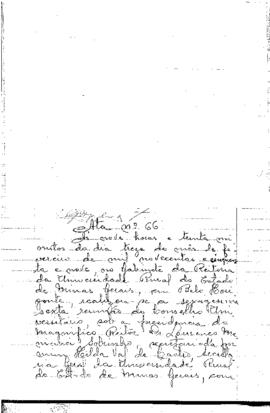 Ata nº 66
Às nove horas e trinta mi
nutos do dia treze do mês de fe
vereiro de mil novecentos e cinquen
ta e nove, no Gabinete da Reitoria
da Universidade Rural do Estado
de Minas Gerais, em Belo Hori
zonte, realizou-se a sexagésima
sexta reunião do Conselho Uni
versitário, sob a presidência do
Magnífico Reitor Dr. Lourenço Me
nicucci Sobrinho, secretariada por
mim, Hilda Val de Castro, Secretá
ria Geral da Universidade Rural
do Estado de Minas Gerais, com